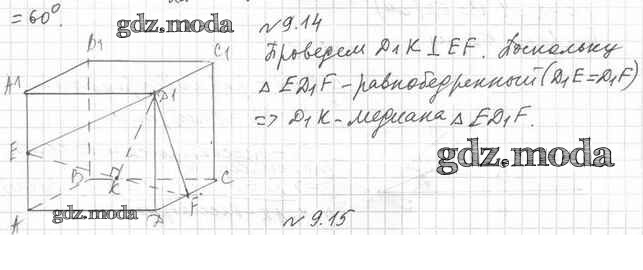 = 60°.
gdz.moda
№ 9.14
Проведем D₁K ⊥ EF. Поскольку
△ ED₁F - равнобедренный (D₁E = D₁F)
=> D₁K - медиана △ ED₁F.
gdz.moda
B1
C1
A1
D1
E
B
K
C
F
gdz.moda
A
D
№ 9.15